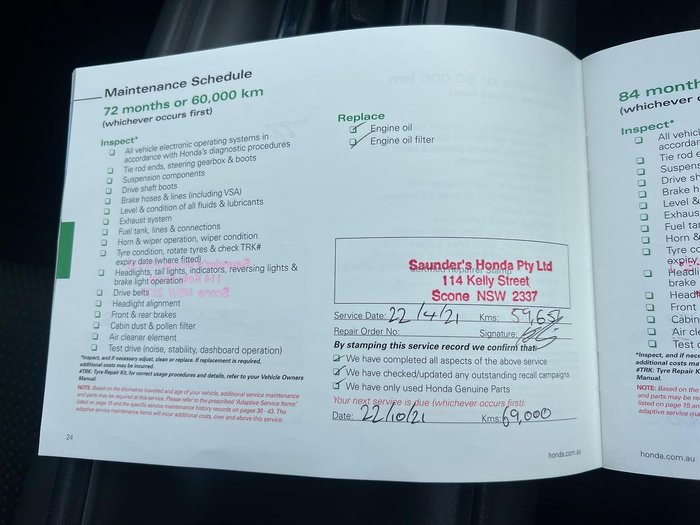 Maintenance Schedule
72 months or 60,000 km
(whichever occurs first)
Inspect*
All vehicle electronic operating systems in
accordance with Honda's diagnostic procedures
Tie rod ends, steering gearbox & boots
Suspension components
Drive shaft boots
Brake hoses & lines (including VSA)
Level & condition of all fluids & lubricants
Exhaust system
Fuel tank, lines & connections
Horn & wiper operation, wiper condition
Tyre condition, rotate tyres & check TRK#
expiry date (where fitted)
Headlights, tail lights, indicators, reversing lights &
brake light operation
Drive belts
Headlight alignment
Front & rear brakes
Cabin dust & pollen filter
Air cleaner element
Test drive (noise, stability, dashboard operation)
*Inspect, and if necessary adjust, clean or replace. If replacement is required,
additional costs may be incurred.
#TRK: Tyre Repair Kit, for correct usage and procedures, refer to your Vehicle Owners
Manual.
NOTE: Based on the kilometres travelled and age of your vehicle, additional service maintenance
and parts may be required at this service. Please refer to the prescribed 'Adaptive Service Items'
listed on page 15 and the specific service maintenance history records on pages 30 - 43. The
adaptive service maintenance items will incur additional costs, over and above this service.
24
Replace
Engine oil
Engine oil filter
Saunder's Honda Pty Ltd
114 Kelly Street
Scone NSW 2337
Service Date: 22/4/21 Kms: 59,656
Repair Order No: Signature:
By stamping this service record we confirm that:
We have completed all aspects of the above service
We have checked/updated any outstanding recall campaigns
We have only used Honda Genuine Parts
Your next service is due (whichever occurs first):
Date: 22/10/21 Kms: 69,000
honda.com.au
84 month
(whichever
Inspect*
All vehicl
accordan
Tie rod e
Suspens
Drive sh
Brake h
Level &
Exhaus
Fuel tan
Horn &
Tyre co
expiry
Headli
brake
Drive
Headl
Front
Cabin
Air cle
Test d
*Inspect, and if nece
additional costs ma
#TRK: Tyre Repair K
Manual.
NOTE: Based on the
and parts may be re
listed on page 15 an
adaptive service ma
honda.com.au